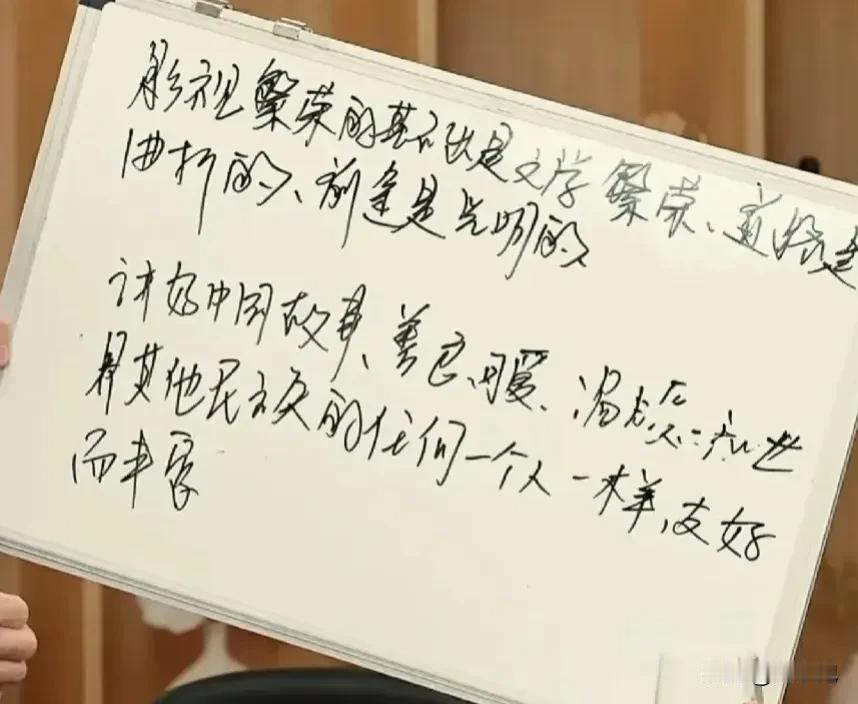 影视繁荣的基础是文学繁荣、道路是
曲折的、前途是光明的
讲好中国故事、善良、暖、渴求和世
界其他民族的任何一个人一样,友好
而丰富